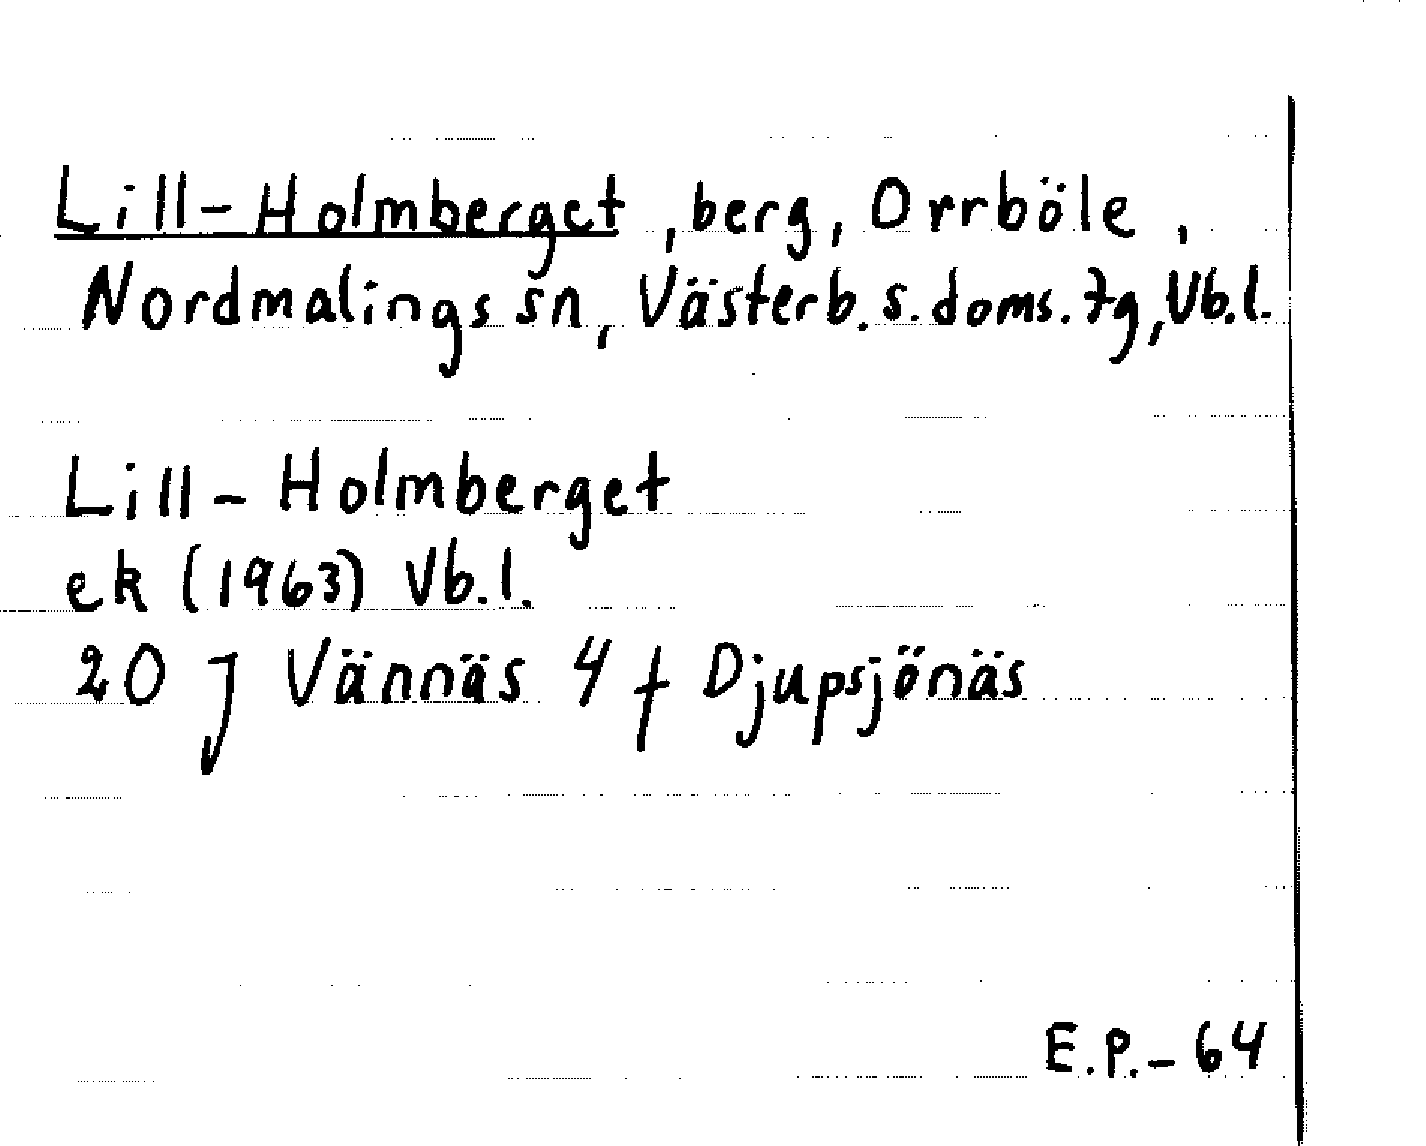 Lill-Holmberget, berg, Orrböle,
Nordmalings sn, Västerb. s. doms. tg, Vb.l.
Lill-Holmberget
ek (1963) Vb.l.
20 J Vännäs 4 f Djupsjönäs
E.P.-64